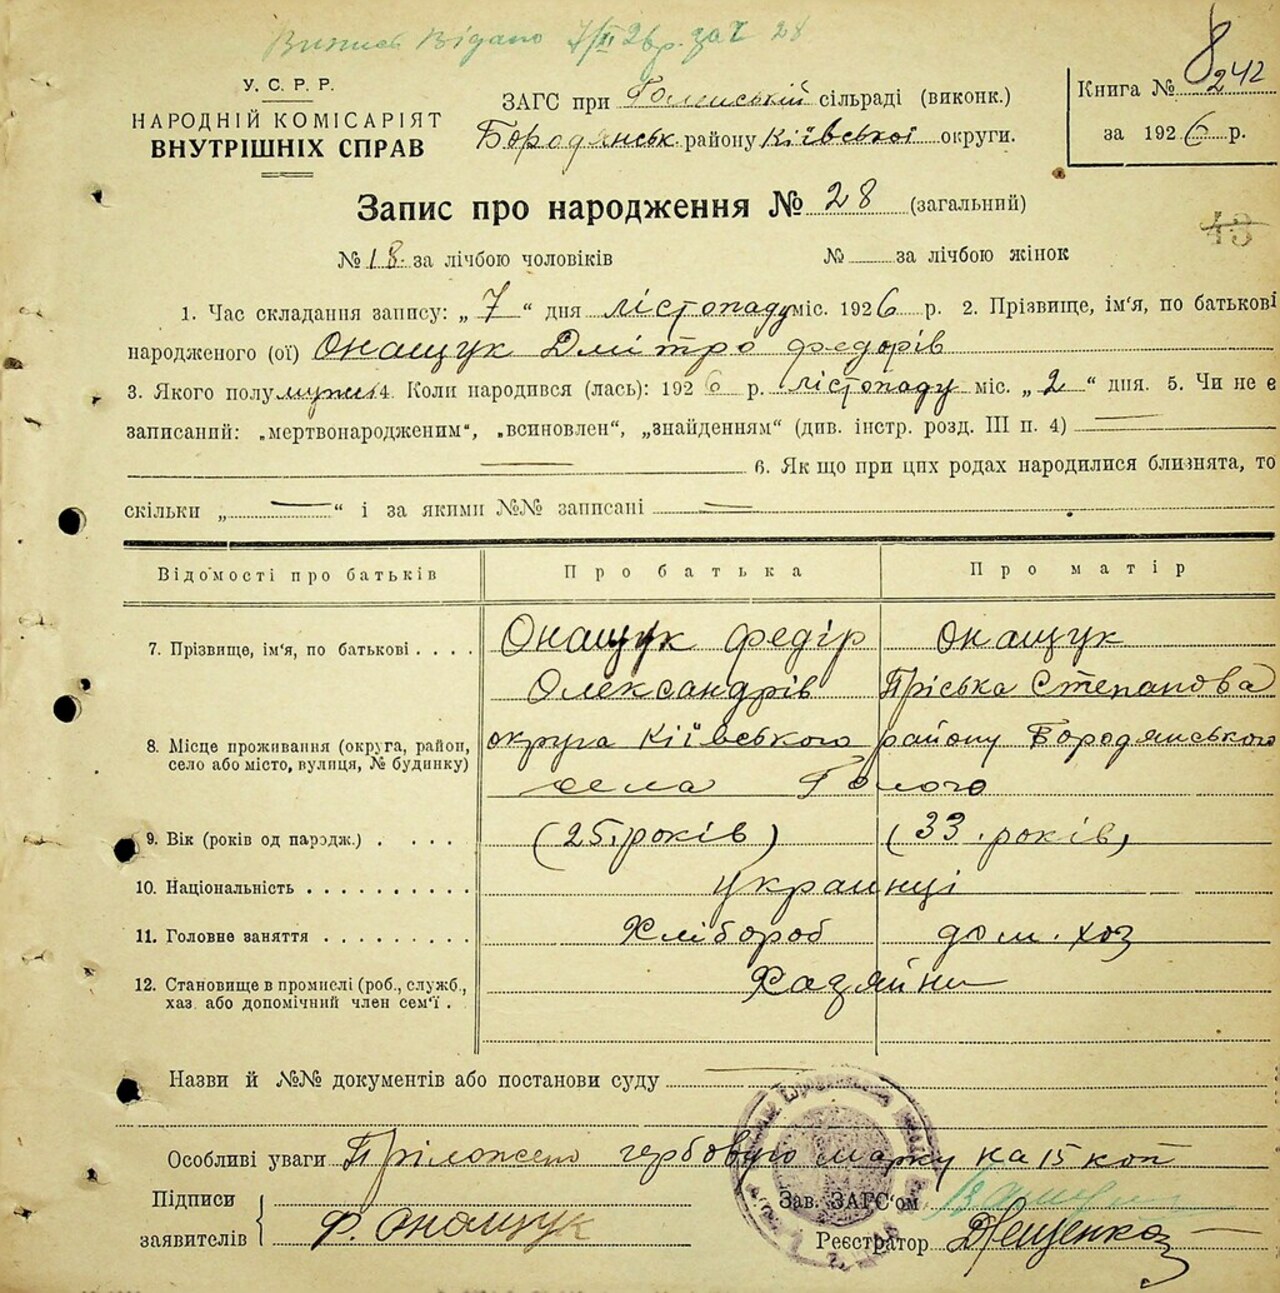 Випись Видано 7/XI 26 р. за № 28
У. С. Р. Р.
НАРОДНІЙ КОМІСАРІЯТ
ВНУТРІШНІХ СПРАВ
ЗАГС при Голинській сільраді (виконк.)
Бородянськ. району Київської округи.
Книга № 8 242
за 1926 р.
Запис про народження № 28 (загальний)
43
№ 18. за лічбою чоловіків № за лічбою жінок
1. Час складання запису: „ 7 “ дня лістопаду міс. 1926 р. 2. Прізвище, ім‘я, по батькові
народженого (ої) Онащук Дмітро федорів
3. Якого полу мужс 4. Коли народився (лась): 1926 р. лістопаду міс. „ 2 “ дня. 5. Чи не є
записаний: „мертвонародженим“, „всиновлен“, „знайденням“ (див. інстр. розд. III п. 4)
6. Як що при цих родах народилися близнята, то
скільки „ “ і за якими №№ записані
Відомості про батьків Про батька Про матір
7. Прізвище, ім‘я, по батькові . . . . Онащук федір Онащук
Олександрів Пріська Степанова
8. Місце проживання (округа, район, округа Київського району Бородянського
село або місто, вулиця, № будинку) села Голого
9. Вік (років од народж.) . . . . (25. років) (33. років)
10. Національність . . . . . . . . . . украинці
11. Головне заняття . . . . . . . . . Хлібороб дом. хоз
12. Становище в промислі (роб., служб., Хазяйни
хаз. або допомічний член сем‘ї .
Назви й №№ документів або постанови суду
Особливі уваги Пріложено гербовую марку на 15 коп
Підписи Зав. ЗАГС‘ом
заявителів Ф. Онащук Реєстратор